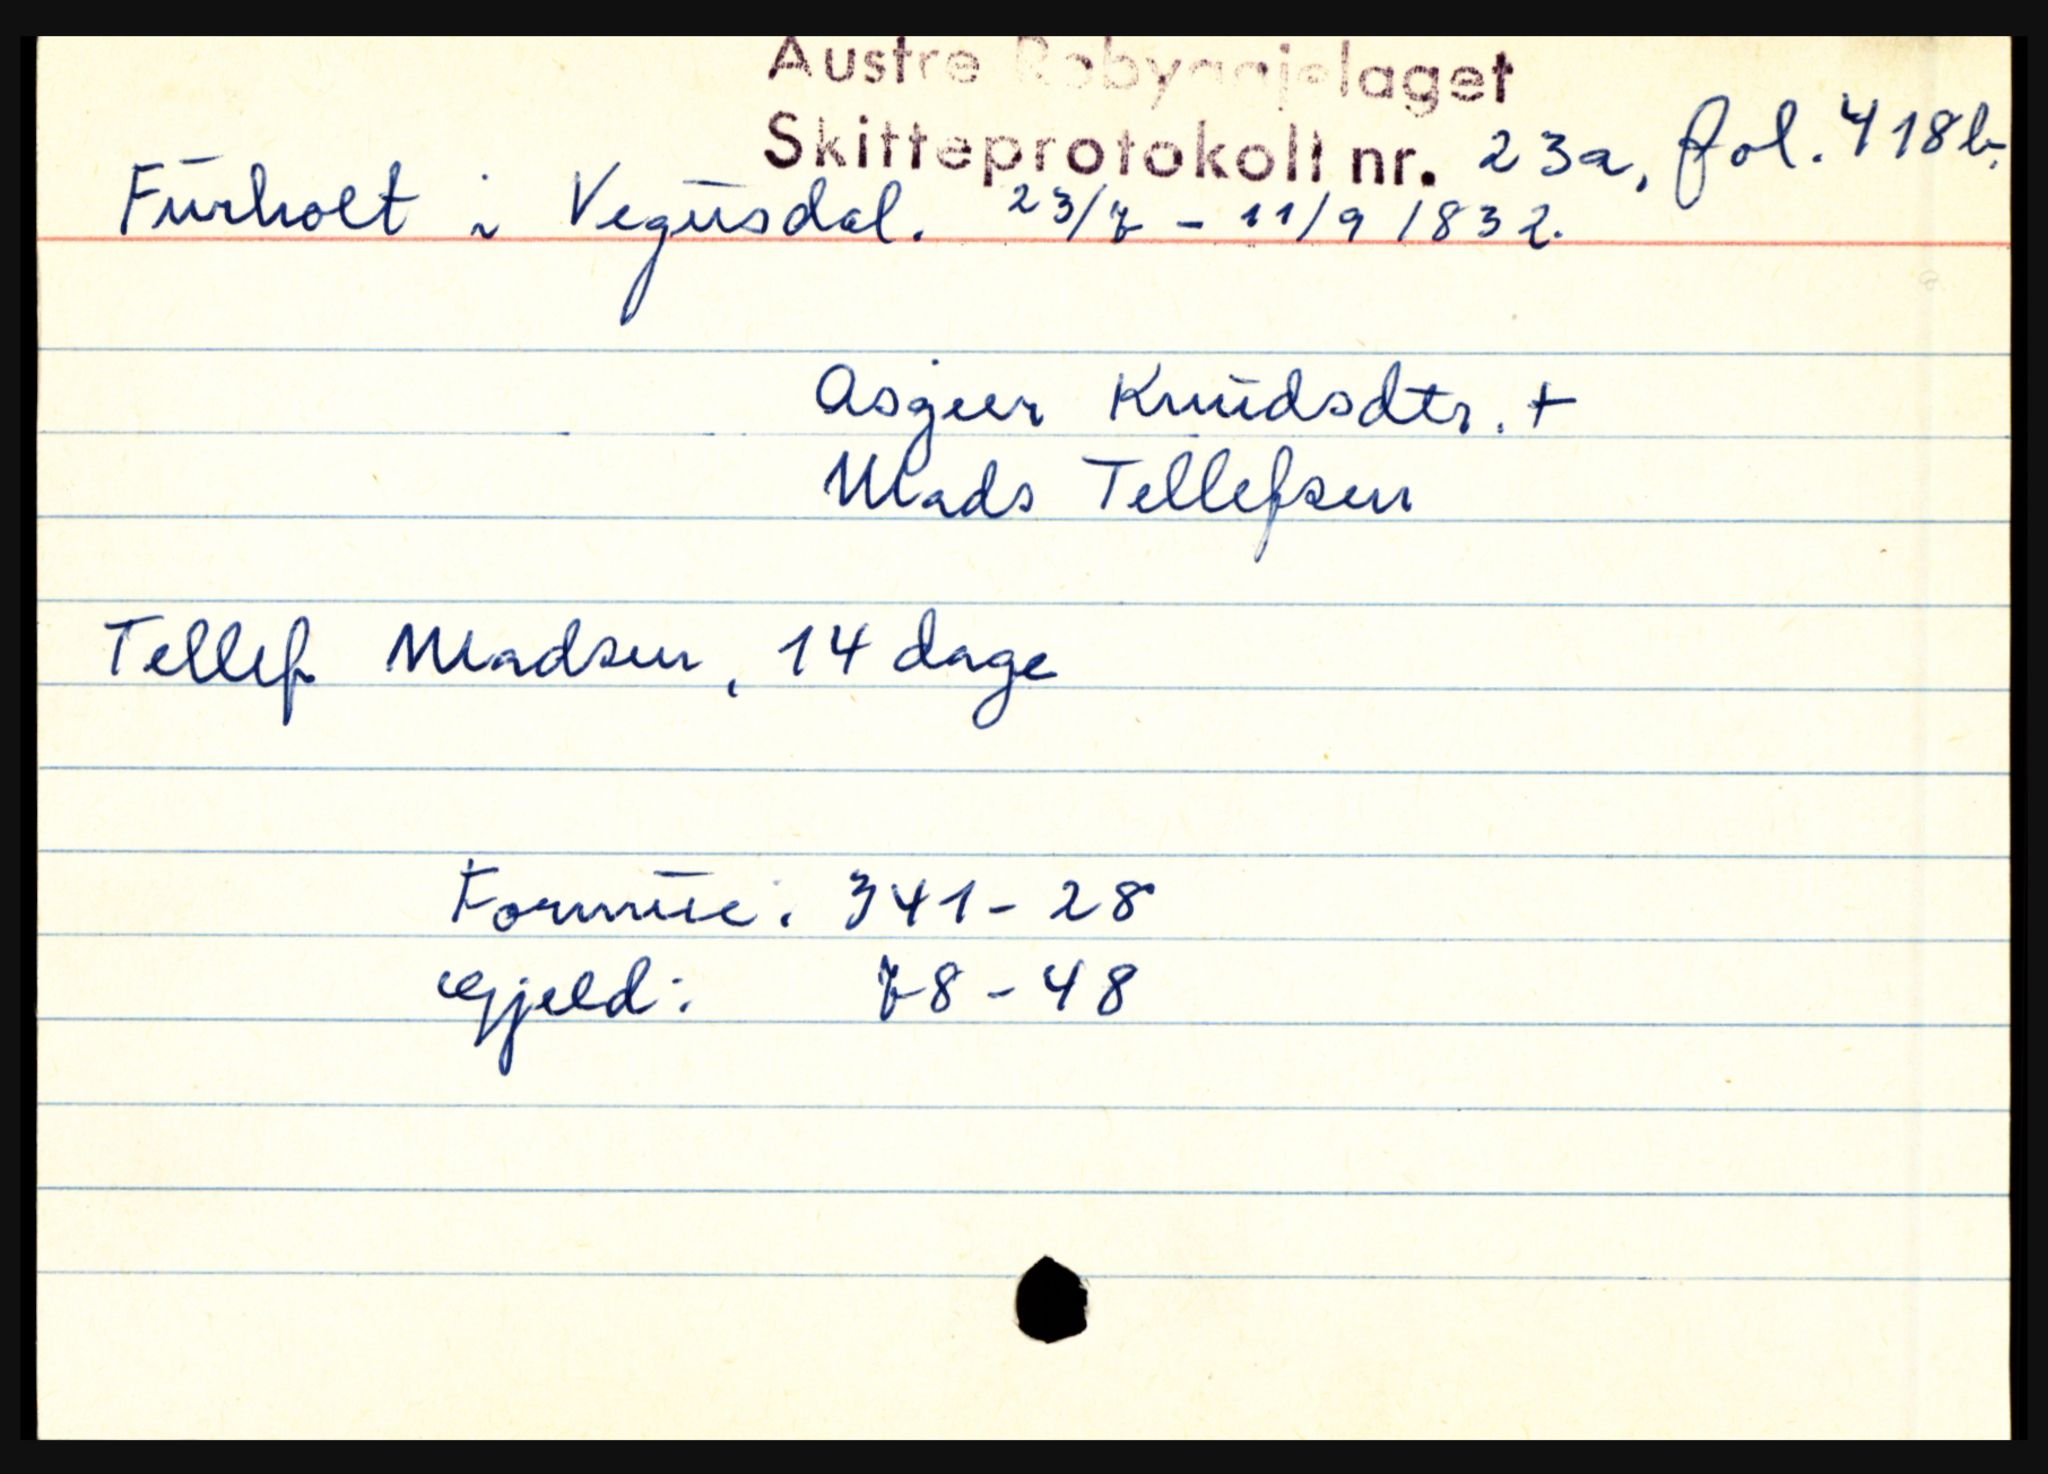 Austre Robyggjelaget
Skifteprotokoll nr. 23a, fol. 418b.
Furholt i Vegusdal. 23/7 - 11/9 1832.
Asgjer Knudsdtr. +
Mads Tellefsen
Tellef Madsen, 14 dage
Formue: 341 - 28
Gjeld: 78 - 48